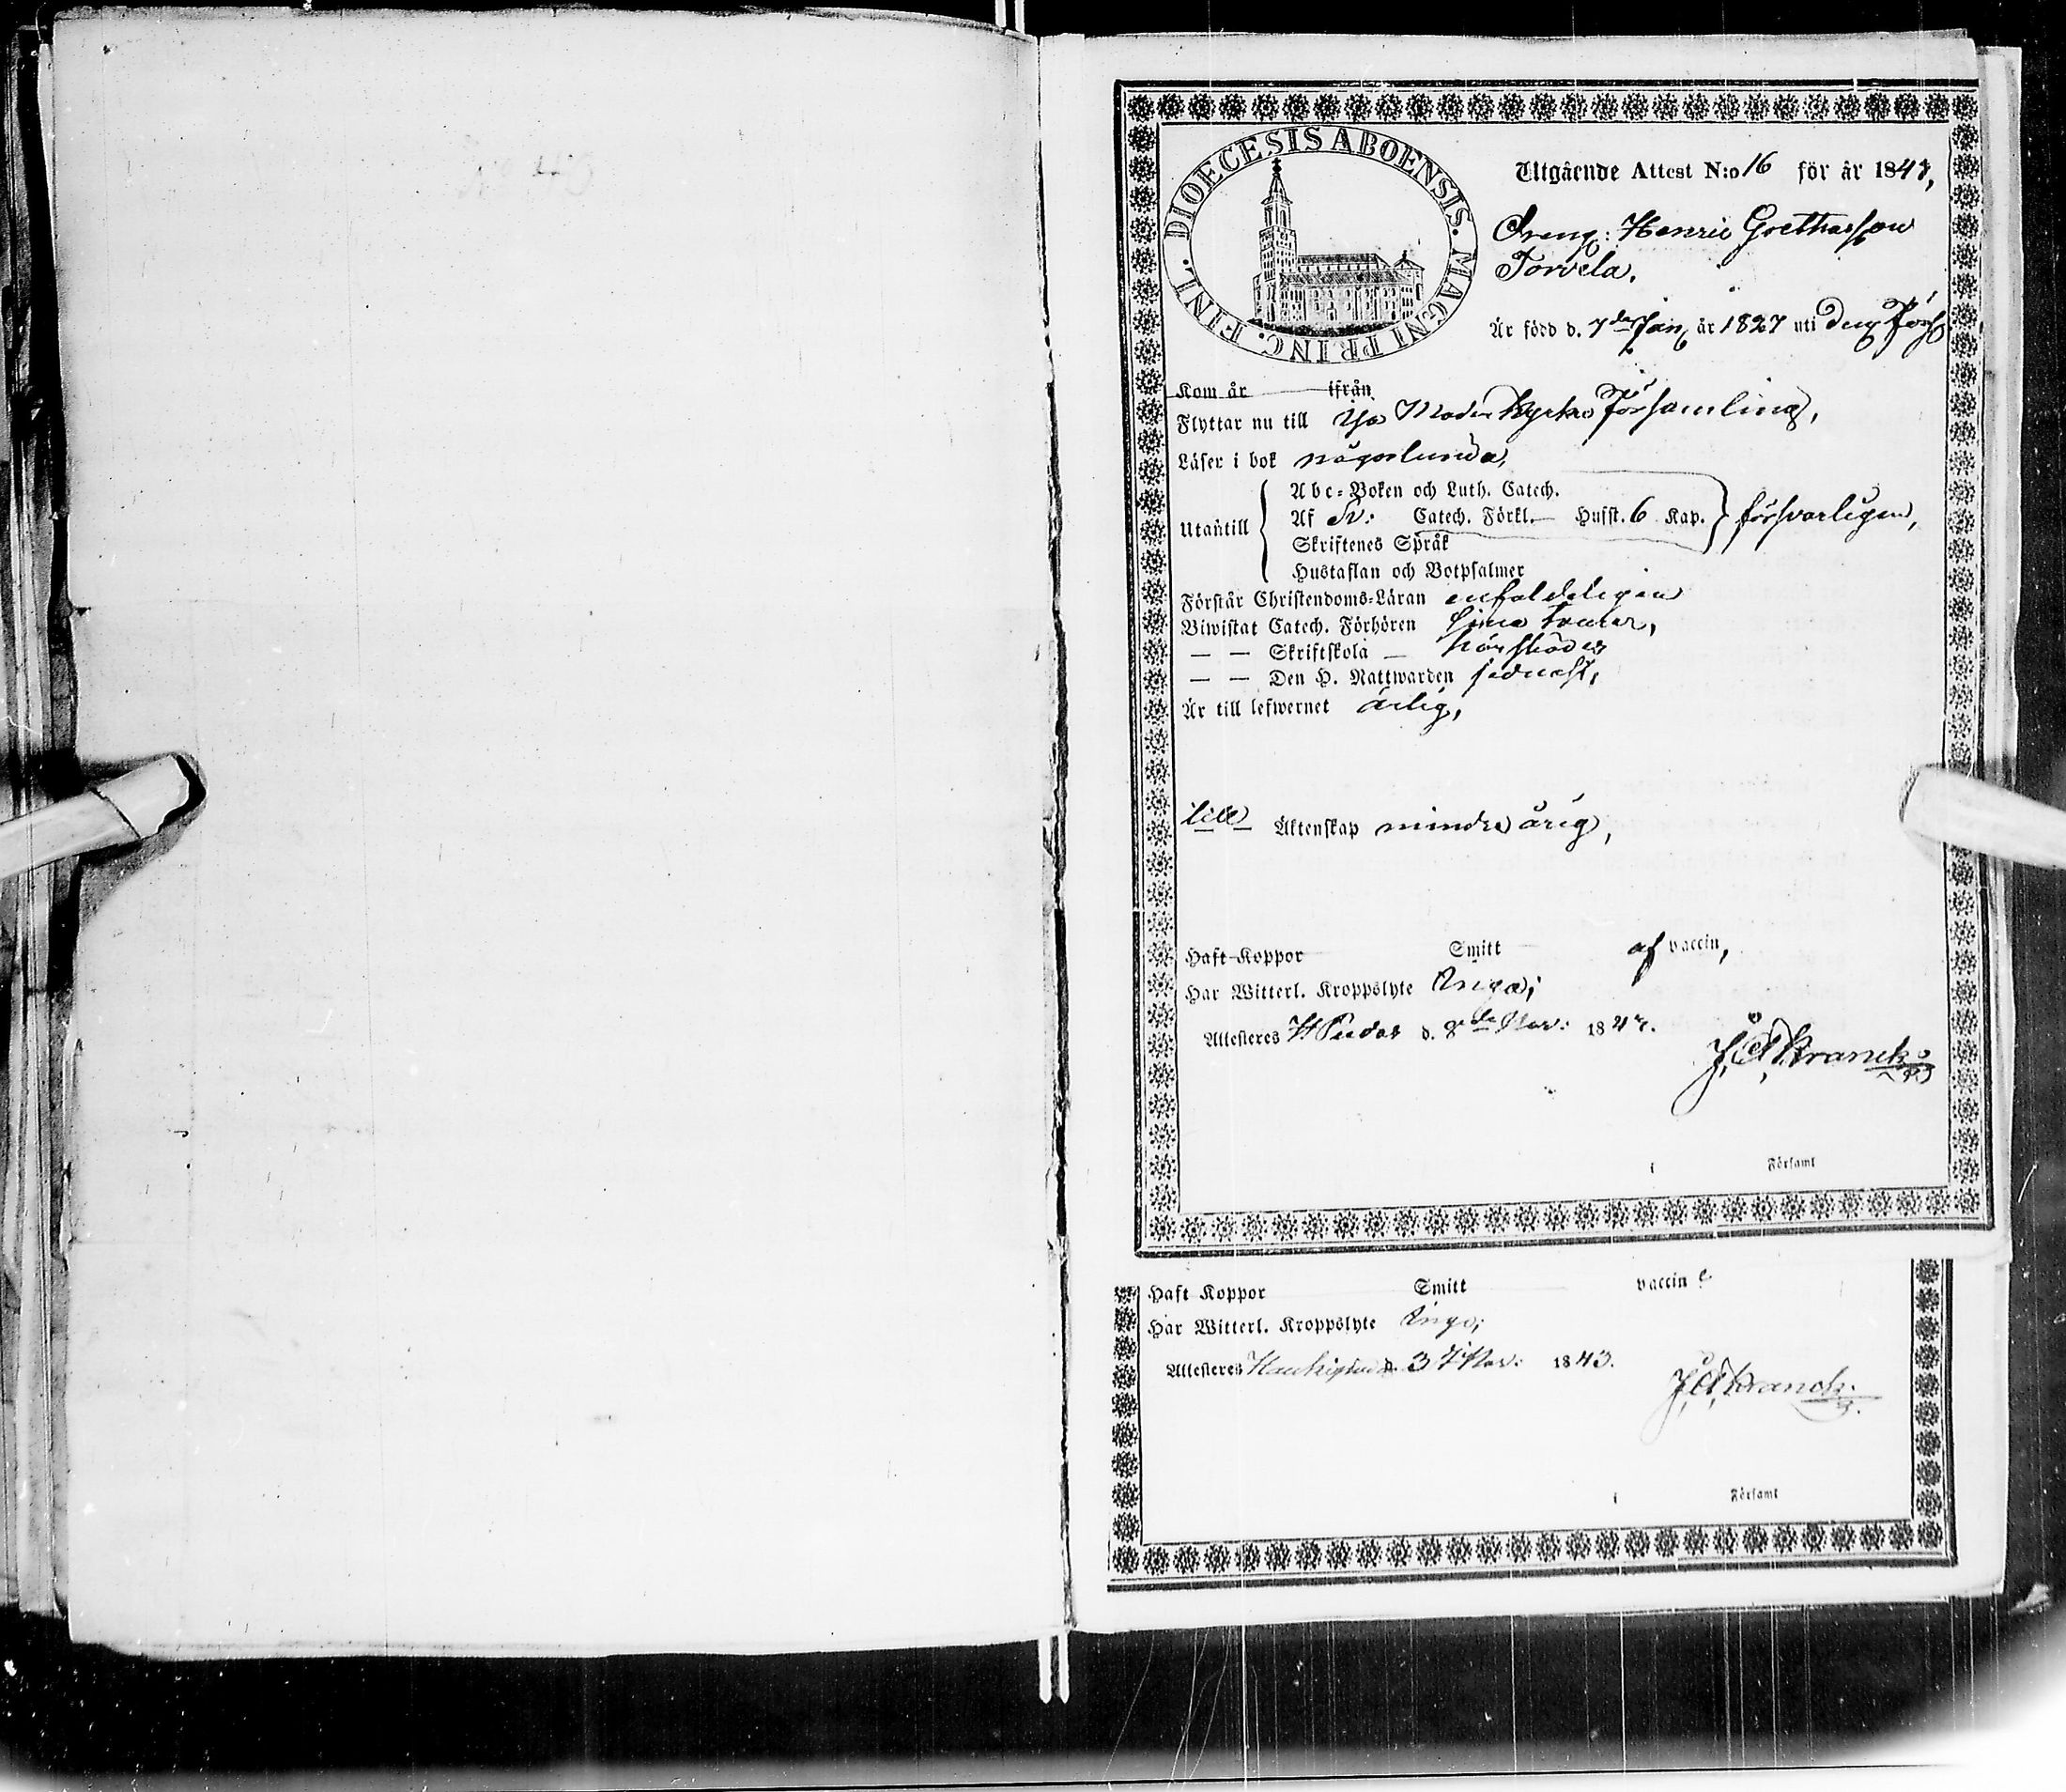 N:o 40
DIOECESIS ABOENSIS. MAGNI PRINC. FINL.
Utgående Attest N:o 16 för år 1847,
Dreng: Henric Grethasson
Torvela.
Är född d. 7de Jan. år 1827 uti denna Förs.
Kom år ifrån
Flyttar nu till Ijo Moder Kyrko Församling,
Läser i bok någorlunda,
Utantill
Abc-Boken och Luth. Catech.
Af Sv: Catech. Förkl.— Husst. 6 Kap. försvarligen,
Skriftenes Språk
Hustaflan och Botpsalmer
Förstår Christendoms-Läran enfaldeligen
Biwistat Catech. Förhören sina turer,
— — Skriftskola —
— — Den H. Nattwarden sednast,
Är till lefwernet ärlig,
till Äktenskap minderårig,
Haft Koppor Smitt af vaccin,
Har Witterl. Kroppslyte Inga;
Attesteres H Pudas d. 8de Nov: 184
J. A. Kranck.
i Församl
Haft Koppor Smitt vaccin
Har Witterl. Kroppslyte Inga;
Attesteres Haukipudas d. 3 Nov: 1843.
J. A. Kranck.
i Församl